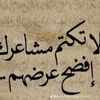 لا تكتم مشاعرك
إفضح عرضهم ..